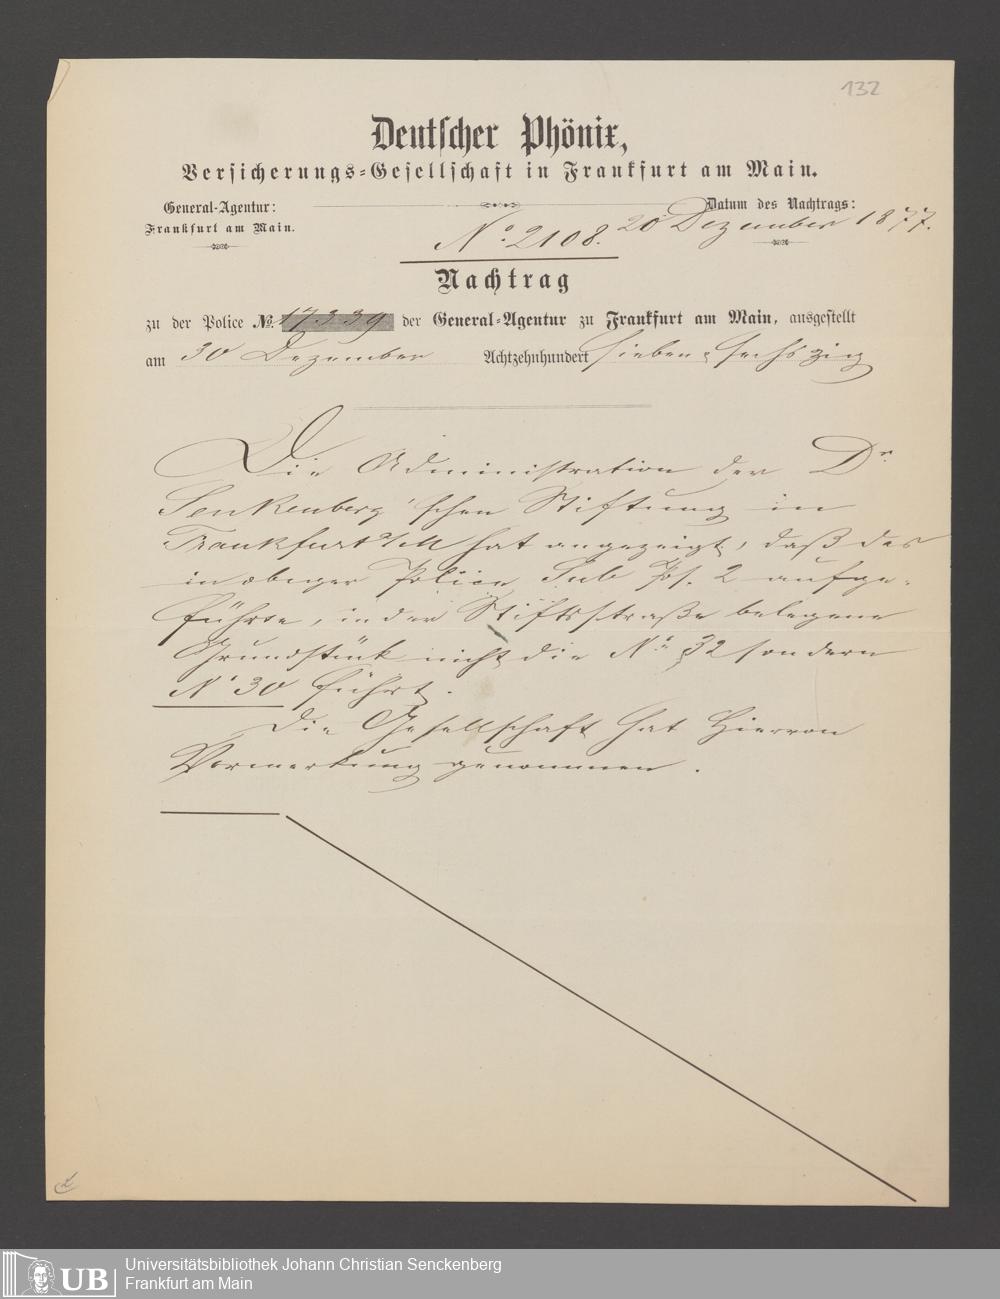 132
Deutscher Phönix,
Versicherungs-Gesellschaft in Frankfurt am Main.
General-Agentur:
Frankfurt am Main.
Datum des Nachtrags:
20 Dezember 1877.
No. 2108.
Nachtrag
zu der Police No. 17339 der General-Agentur zu Frankfurt am Main, ausgestellt
am 30 Dezember Achtzehnhundert sieben & sechszig
Die Administration der Dr.
Senkenberg'schen Stiftung in
Frankfurt a/M hat angezeigt, daß das
in obiger Police Sub Pos. 2 aufge-
führte, in der Stiftsstraße belegene
Grundstück nicht die No. 32 sondern
No 30 führt.
Die Gesellschaft hat hiervon
Vormerkung genommen.
UB
Universitätsbibliothek Johann Christian Senckenberg
Frankfurt am Main